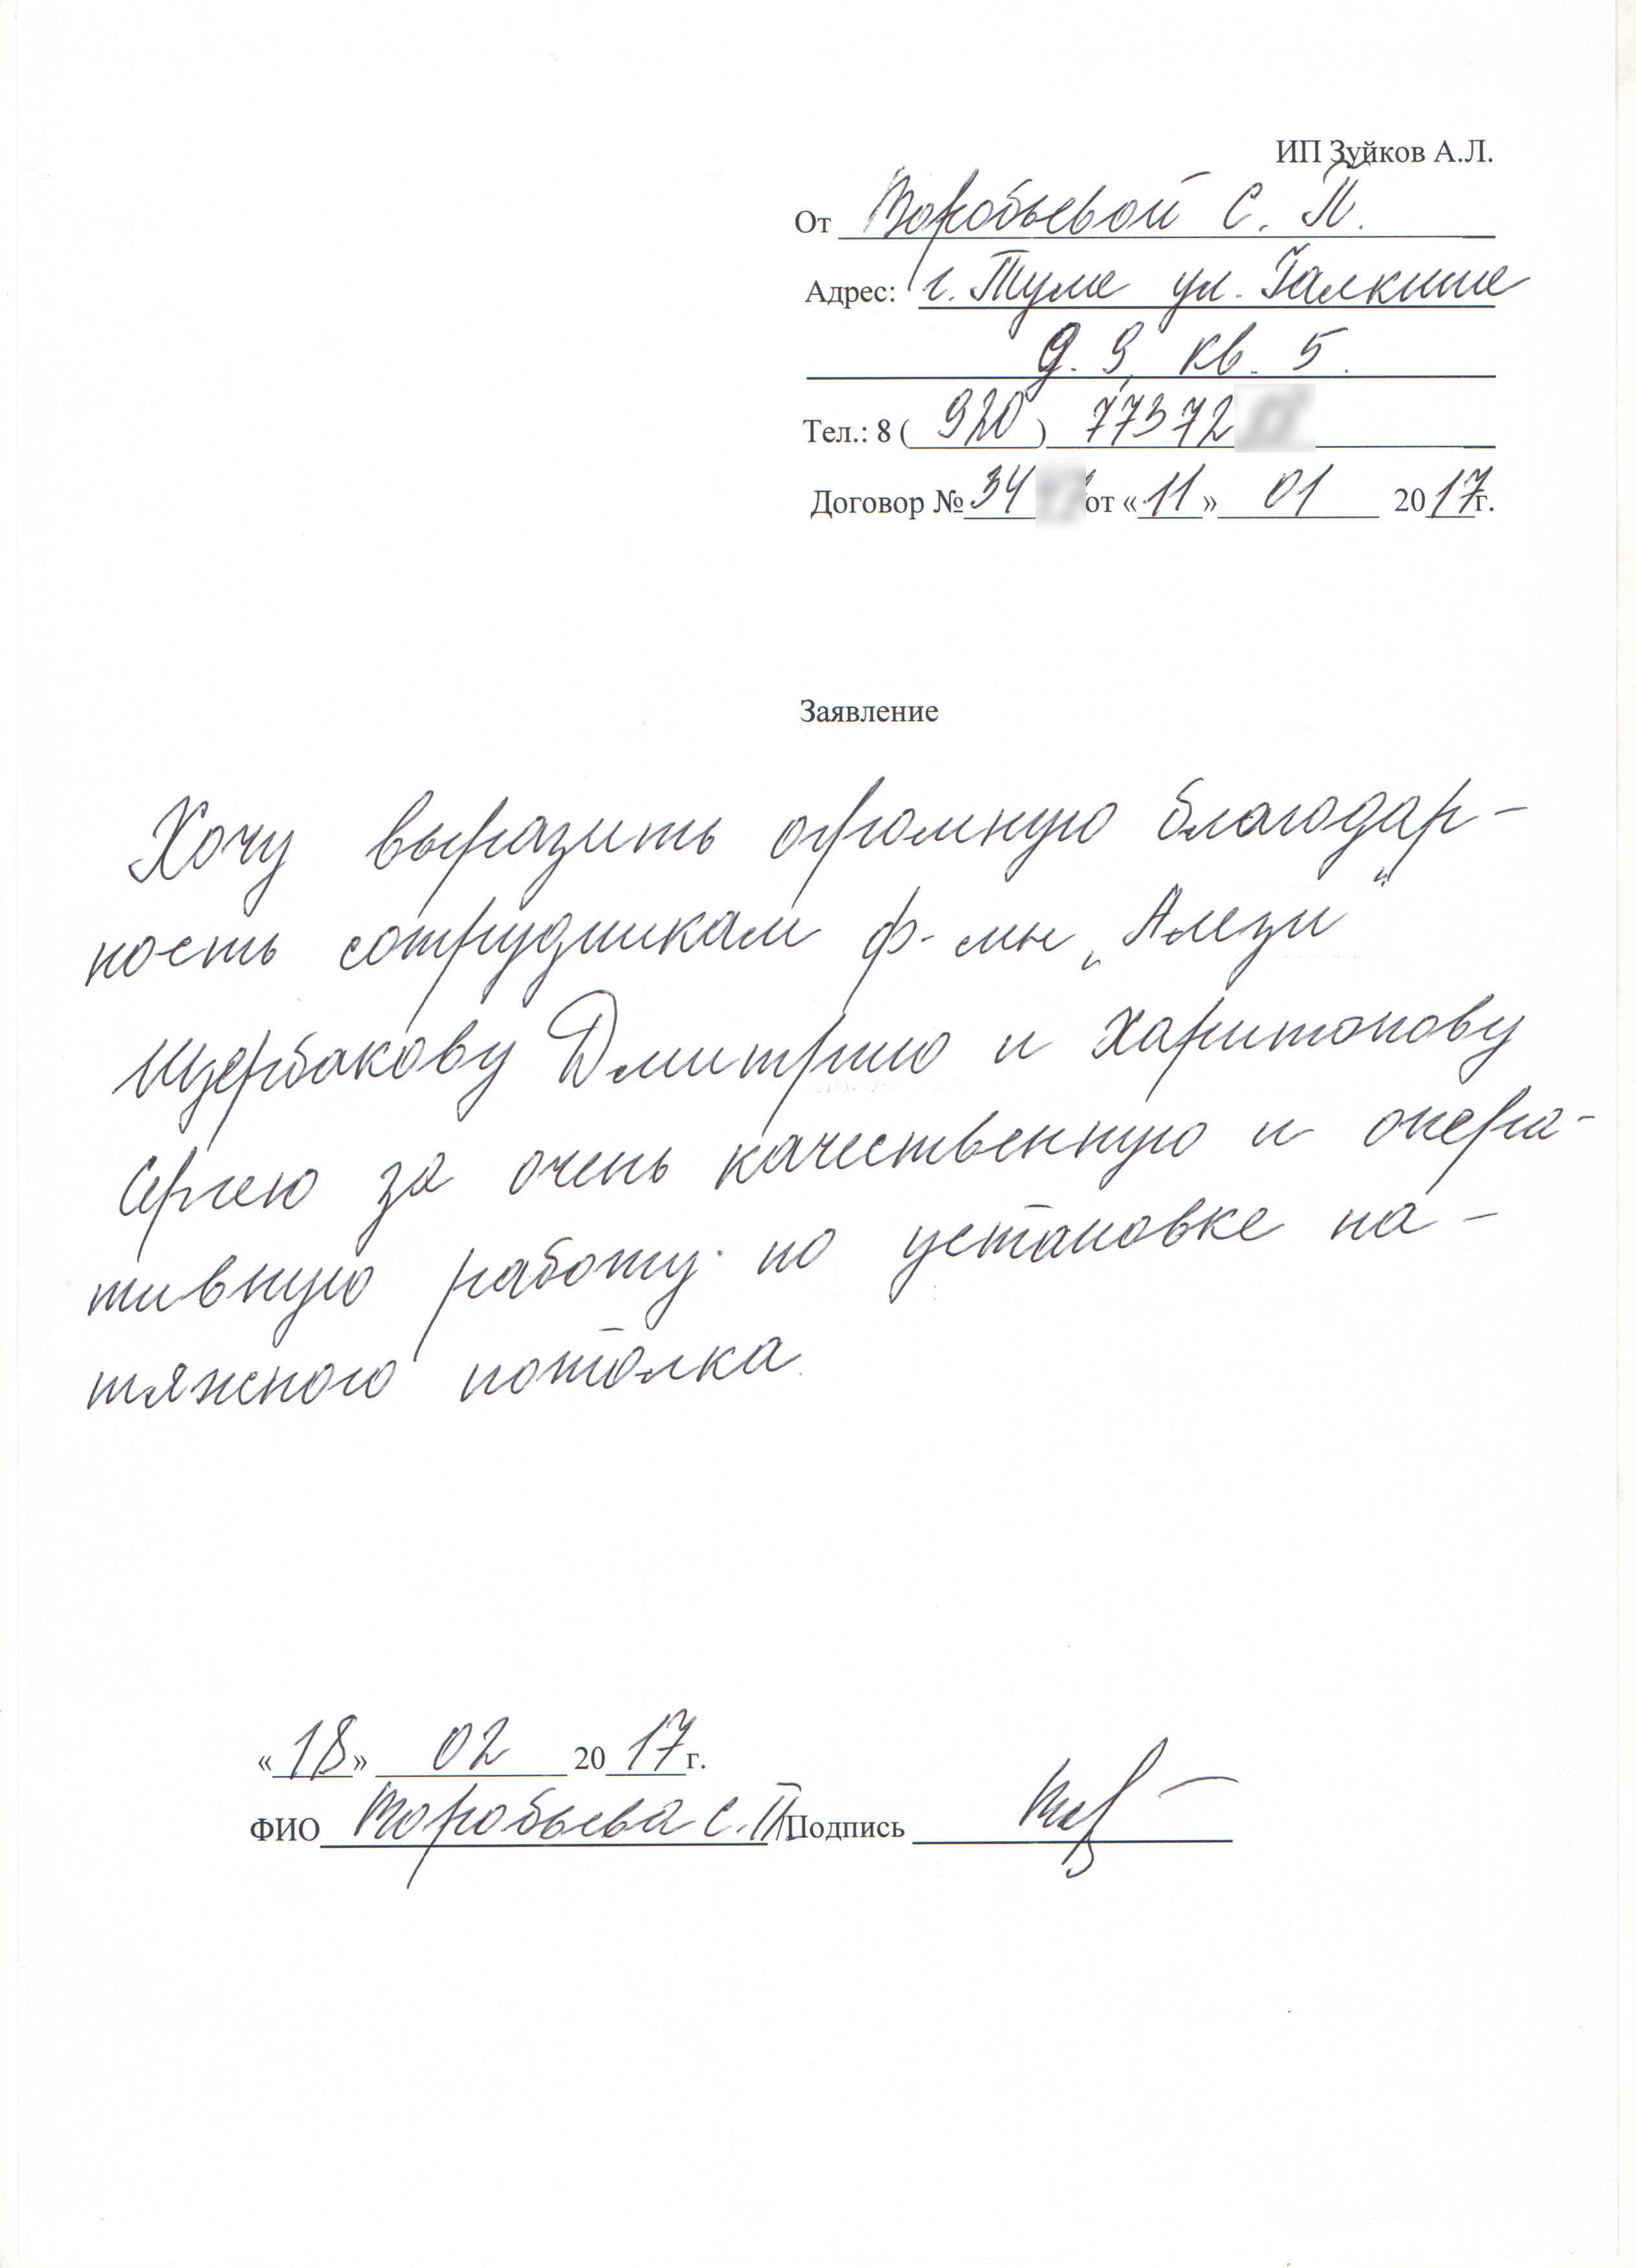 ИП Зуйков А.Л.
От Воробьевой С. П.
Адрес: г. Тула ул. Галкина
д. 9, кв. 5.
Тел.: 8 (920) 77372
Договор № 34 от «11» 01 2017г.
Заявление
Хочу выразить огромную благодар-
ность сотрудникам ф-мы „Алези"
Щербакову Дмитрию и Харитонову
Сергею за очень качественную и опера-
тивную работу по установке на-
тяжного потолка.
«18» 02 2017г.
ФИО Воробьева С.П. Подпись